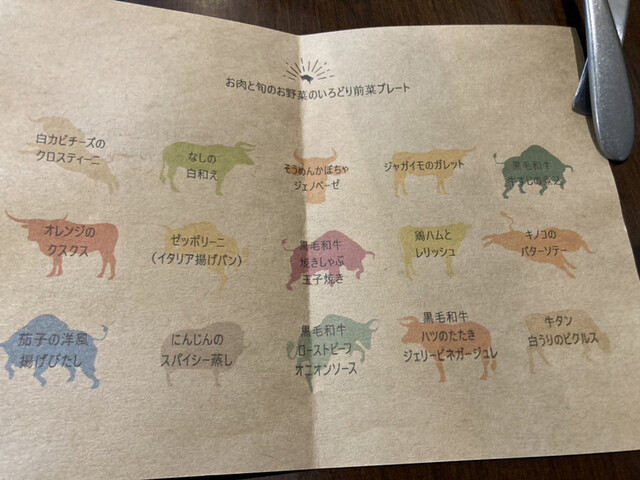 お肉と旬のお野菜のいろどり前菜プレート
白カビチーズの
クロスティーニ
なしの
白和え
そうめんかぼちゃ
ジェノベーゼ
ジャガイモのガレット
黒毛和牛
オレンジの
クスクス
ゼッポリーニ
(イタリア揚げパン)
黒毛和牛
焼きしゃぶ
玉子焼き
鶏ハムと
レリッシュ
キノコの
バターソテー
茄子の洋風
揚げびたし
にんじんの
スパイシー蒸し
黒毛和牛
ローストビーフ
オニオンソース
黒毛和牛
ハツのたたき
ジェリービネガージュレ
牛タン
白うりのピクルス